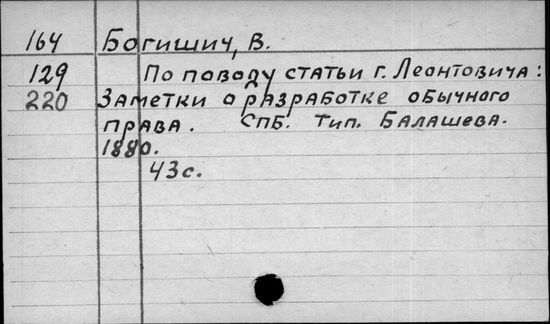 164 Богишич, В.
129 По поводу статьи г. Леонтовича:
220 Заметки о разработке обычного
права. СПБ. Тип. Балашева.
1880.
43с.